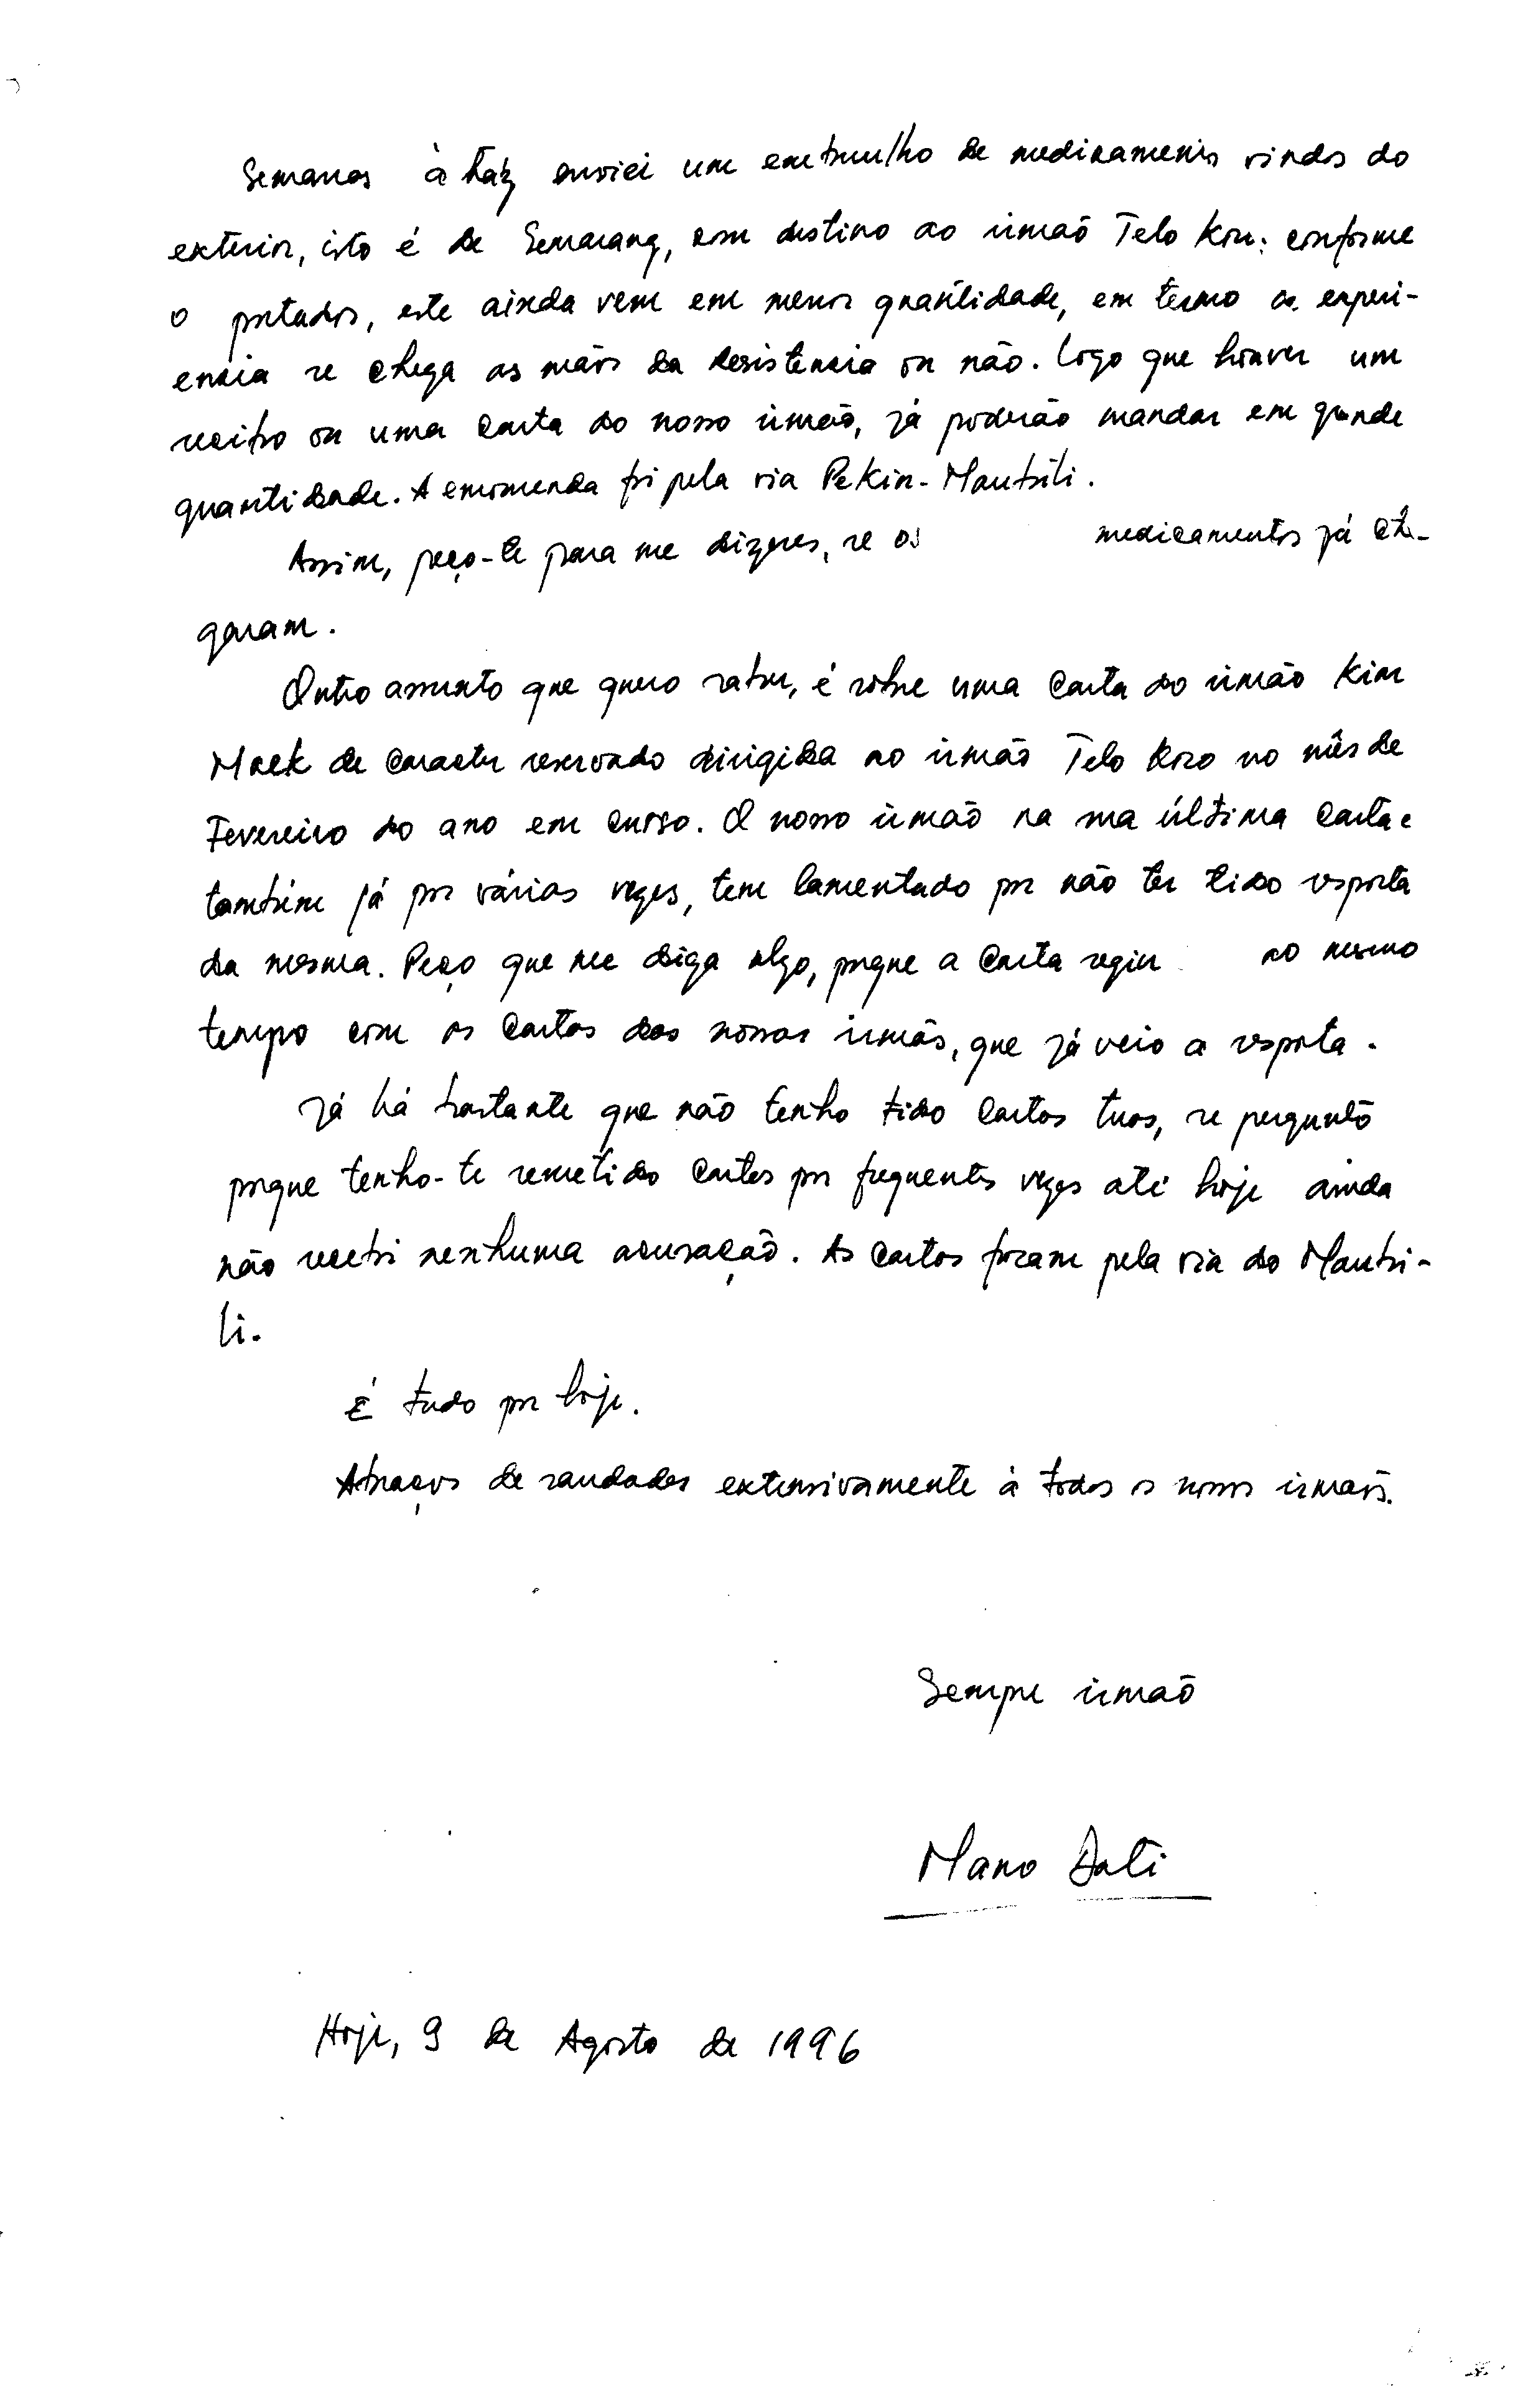 Semanas à traz enviei um embrulho de medicamentos vindos do
exterior, isto é de Semarang, com destino ao irmão Telo Kou: conforme
o portador, este ainda vem em menor quantidade, em termo de experi-
encia se chega as mãos da resistencia ou não. Logo que houver um
recibo ou uma carta do nosso irmão, já poderão mandar em grande
quantidade. A encomenda foi pela via Pekin-Maubili.
Assim, peço-te para me dizeres, se os medicamentos já che-
garam.
Outro assunto que quero saber, é sobre uma carta do irmão Kim
Maek de caracter reservado dirigida ao irmão Telo Koro no mês de
Fevereiro do ano em curso. O nosso irmão na sua última carta e
também já por várias vezes, tem lamentado por não ter tido resposta
da mesma. Peço que me diga algo, porque a carta seguiu ao mesmo
tempo com as cartas das nossas irmãs, que já veio a resposta.
Já há bastante que não tenho tido cartas tuas, se pergunto
porque tenho-te remetido cartas por frequentes vezes até hoje ainda
não recebi nenhuma acusação. As cartas foram pela via do Maubi-
li.
É tudo por hoje.
Abraços de saudades extensivamente à todos os nossos irmãos.
Sempre irmão
Mano Dati
Hoje, 9 de Agosto de 1996